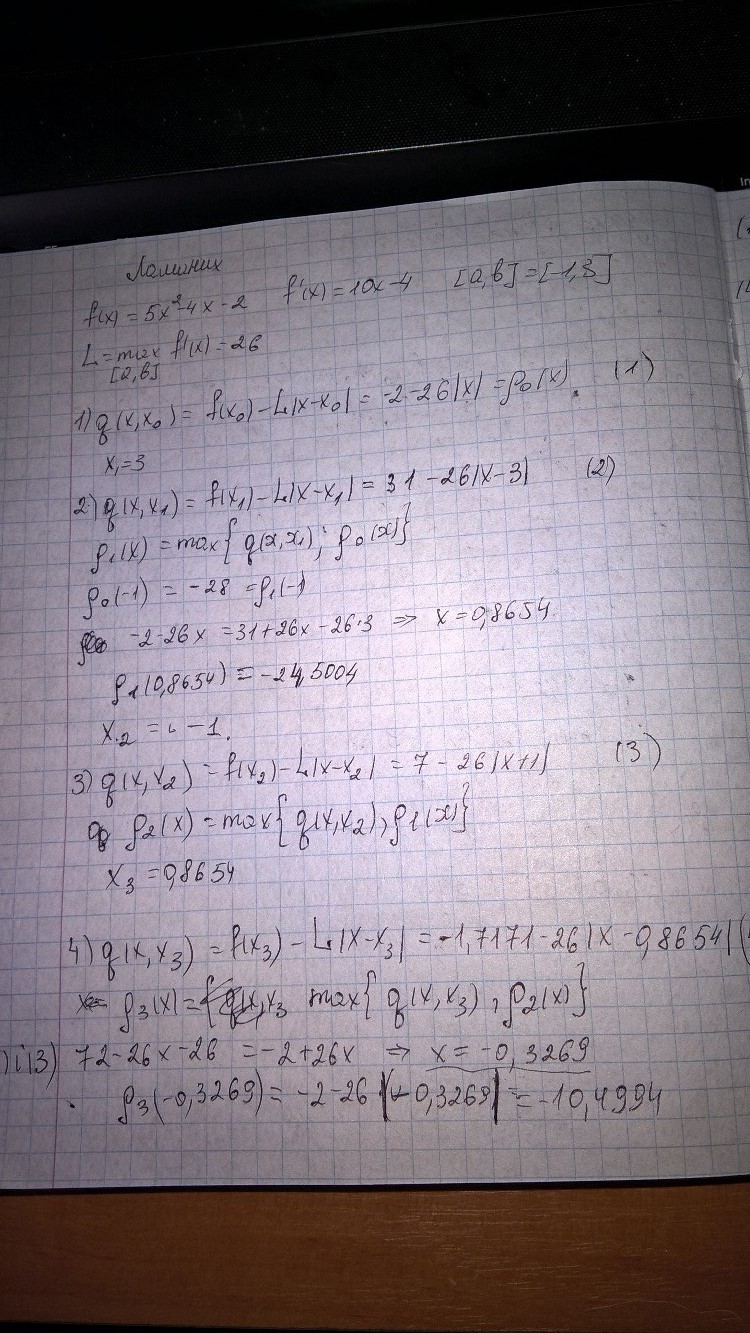 Ломаних
f(x) = 5x²-4x-2 f'(x)=10x-4 [a,b]=[-1,3]
L=max f'(x)=26
[a,b]
1) q(x,x₀) = f(x₀)-L|x-x₀| = -2-26|x| = ρ₀(x). (1)
x₁=3
2) q(x,x₁) = f(x₁)-L|x-x₁| = 31-26|x-3| (2)
ρ₁(x) = max{q(x,x₁); ρ₀(x)}
ρ₀(-1) = -28 = ρ₁(-1)
-2-26x = 31+26x-26·3 ⇒ x=0,8654
ρ₁(0,8654) = -24,5004
x₂ = -1.
3) q(x,x₂) = f(x₂)-L|x-x₂| = 7-26|x+1| (3)
ρ₂(x) = max{q(x,x₂), ρ₁(x)}
x₃ = 0,8654
4) q(x,x₃) = f(x₃)-L|x-x₃| = -1,7171-26|x-0,8654| (
ρ₃(x) = max{q(x,x₃), ρ₂(x)}
)i(3) 7-26x-26 = -2+26x ⇒ x=-0,3269
ρ₃(-0,3269) = -2-26|-0,3269| = -10,4994